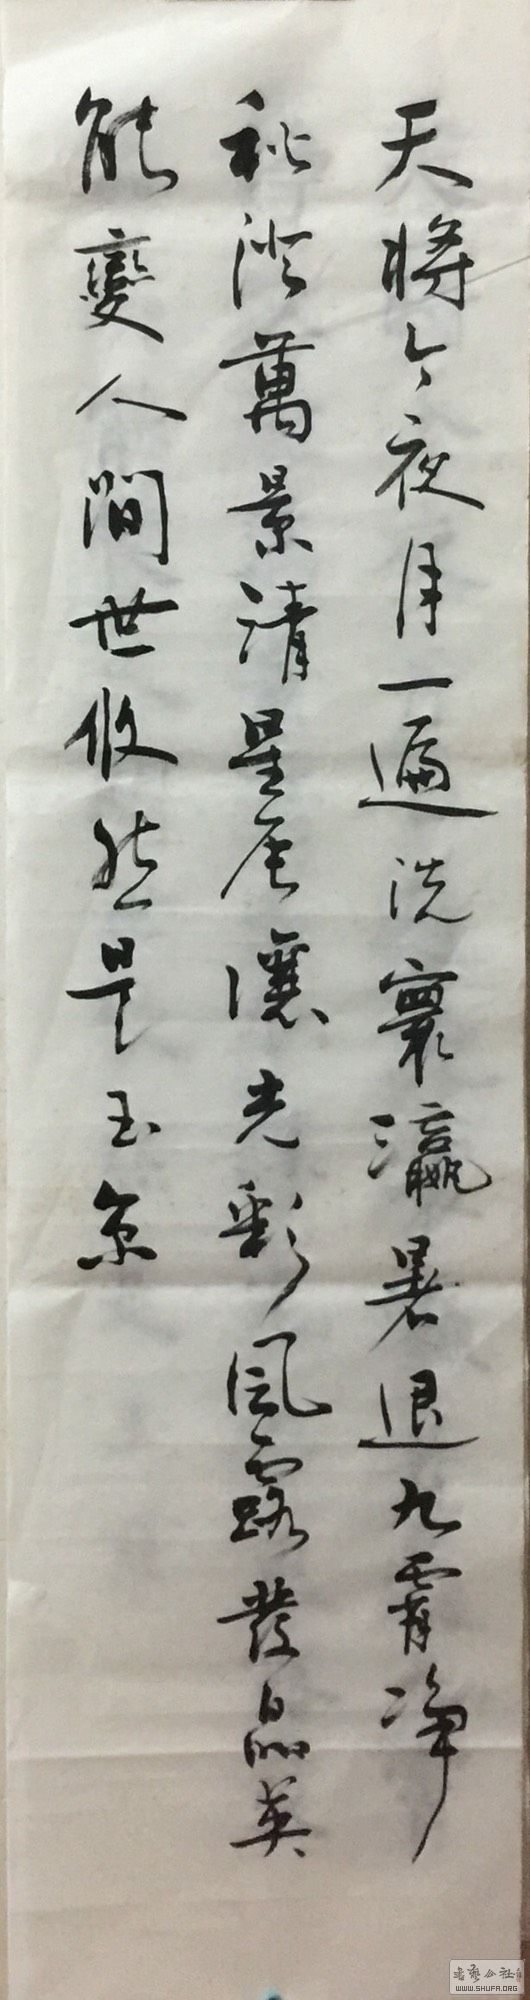 天將今夜月一遍洗寰瀛暑退九霄净
秋澄萬景清星辰讓光彩風露發晶英
能變人間世攸然是玉京
书艺公社
WWW.SHUFA.ORG